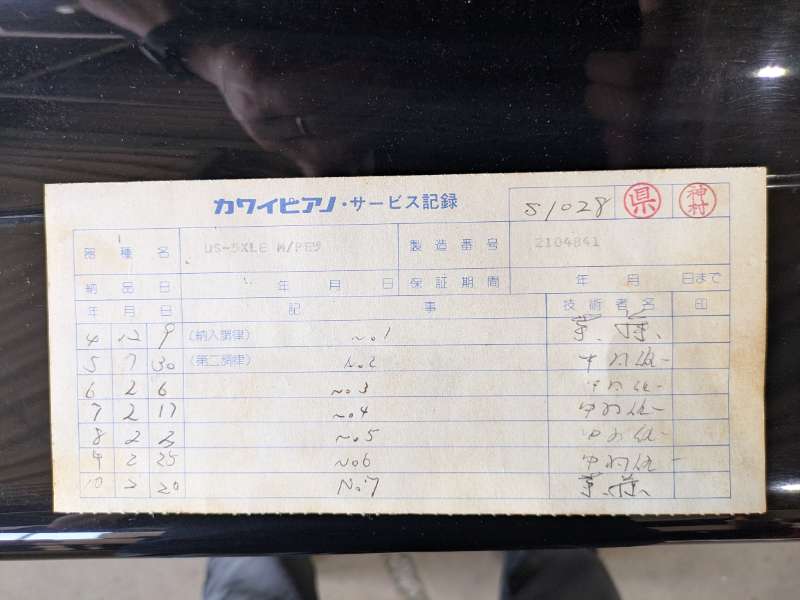 カワイピアノ・サービス記録
S1028 県 神村
器種名 US-5XLE M/PED 製造番号 2104841
納品日 年 月 日 保証期間 年 月 日まで
年 月 日 記事 技術者名 印
4 12 9 (納入調律) No1
5 7 30 (第二調律) No2
6 2 6 No3
7 2 17 No4
8 2 2 No5
9 2 25 No6
10 2 20 No.7